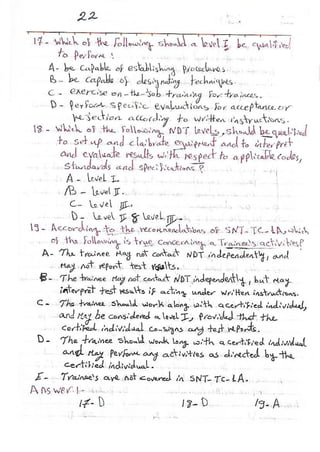 22
17- Which of the following should a level I be qualified
to perform :
A- be capable of establishing procedures.
B- be capable of designating techniques.
C - exercise on-the-job training for trainees.
D- perform specific evaluations for acceptance or
rejection according to written instructions.
18- Which of the following NDT levels, should be qualified
to set up and claibrate equipment and to interpret
and evaluate results with respect to applicable codes,
standards and specifications ?
A - Level I.
B- Level II.
C- Level III.
D- Level II & Level III.
19- According to the recommendations of SNT-TC-1A, which
of the following is true concerning a Trainee's activities?
A- The trainee may not contact NDT independently, and
may not report test results.
B- The trainee may not contact NDT independently, but may
interpret test results if acting under written instructions.
C - The trainee should work along with a certified individual,
and may be considered a level I, provided that the
certified individual co-signs any test reports.
D- The trainee should work long with a certified individual
and may perform any activities as directed by the
certified individual.
E- Trainee's are not covered in SNT-TC-1A.
Answer:-
17-D 18-D 19-A